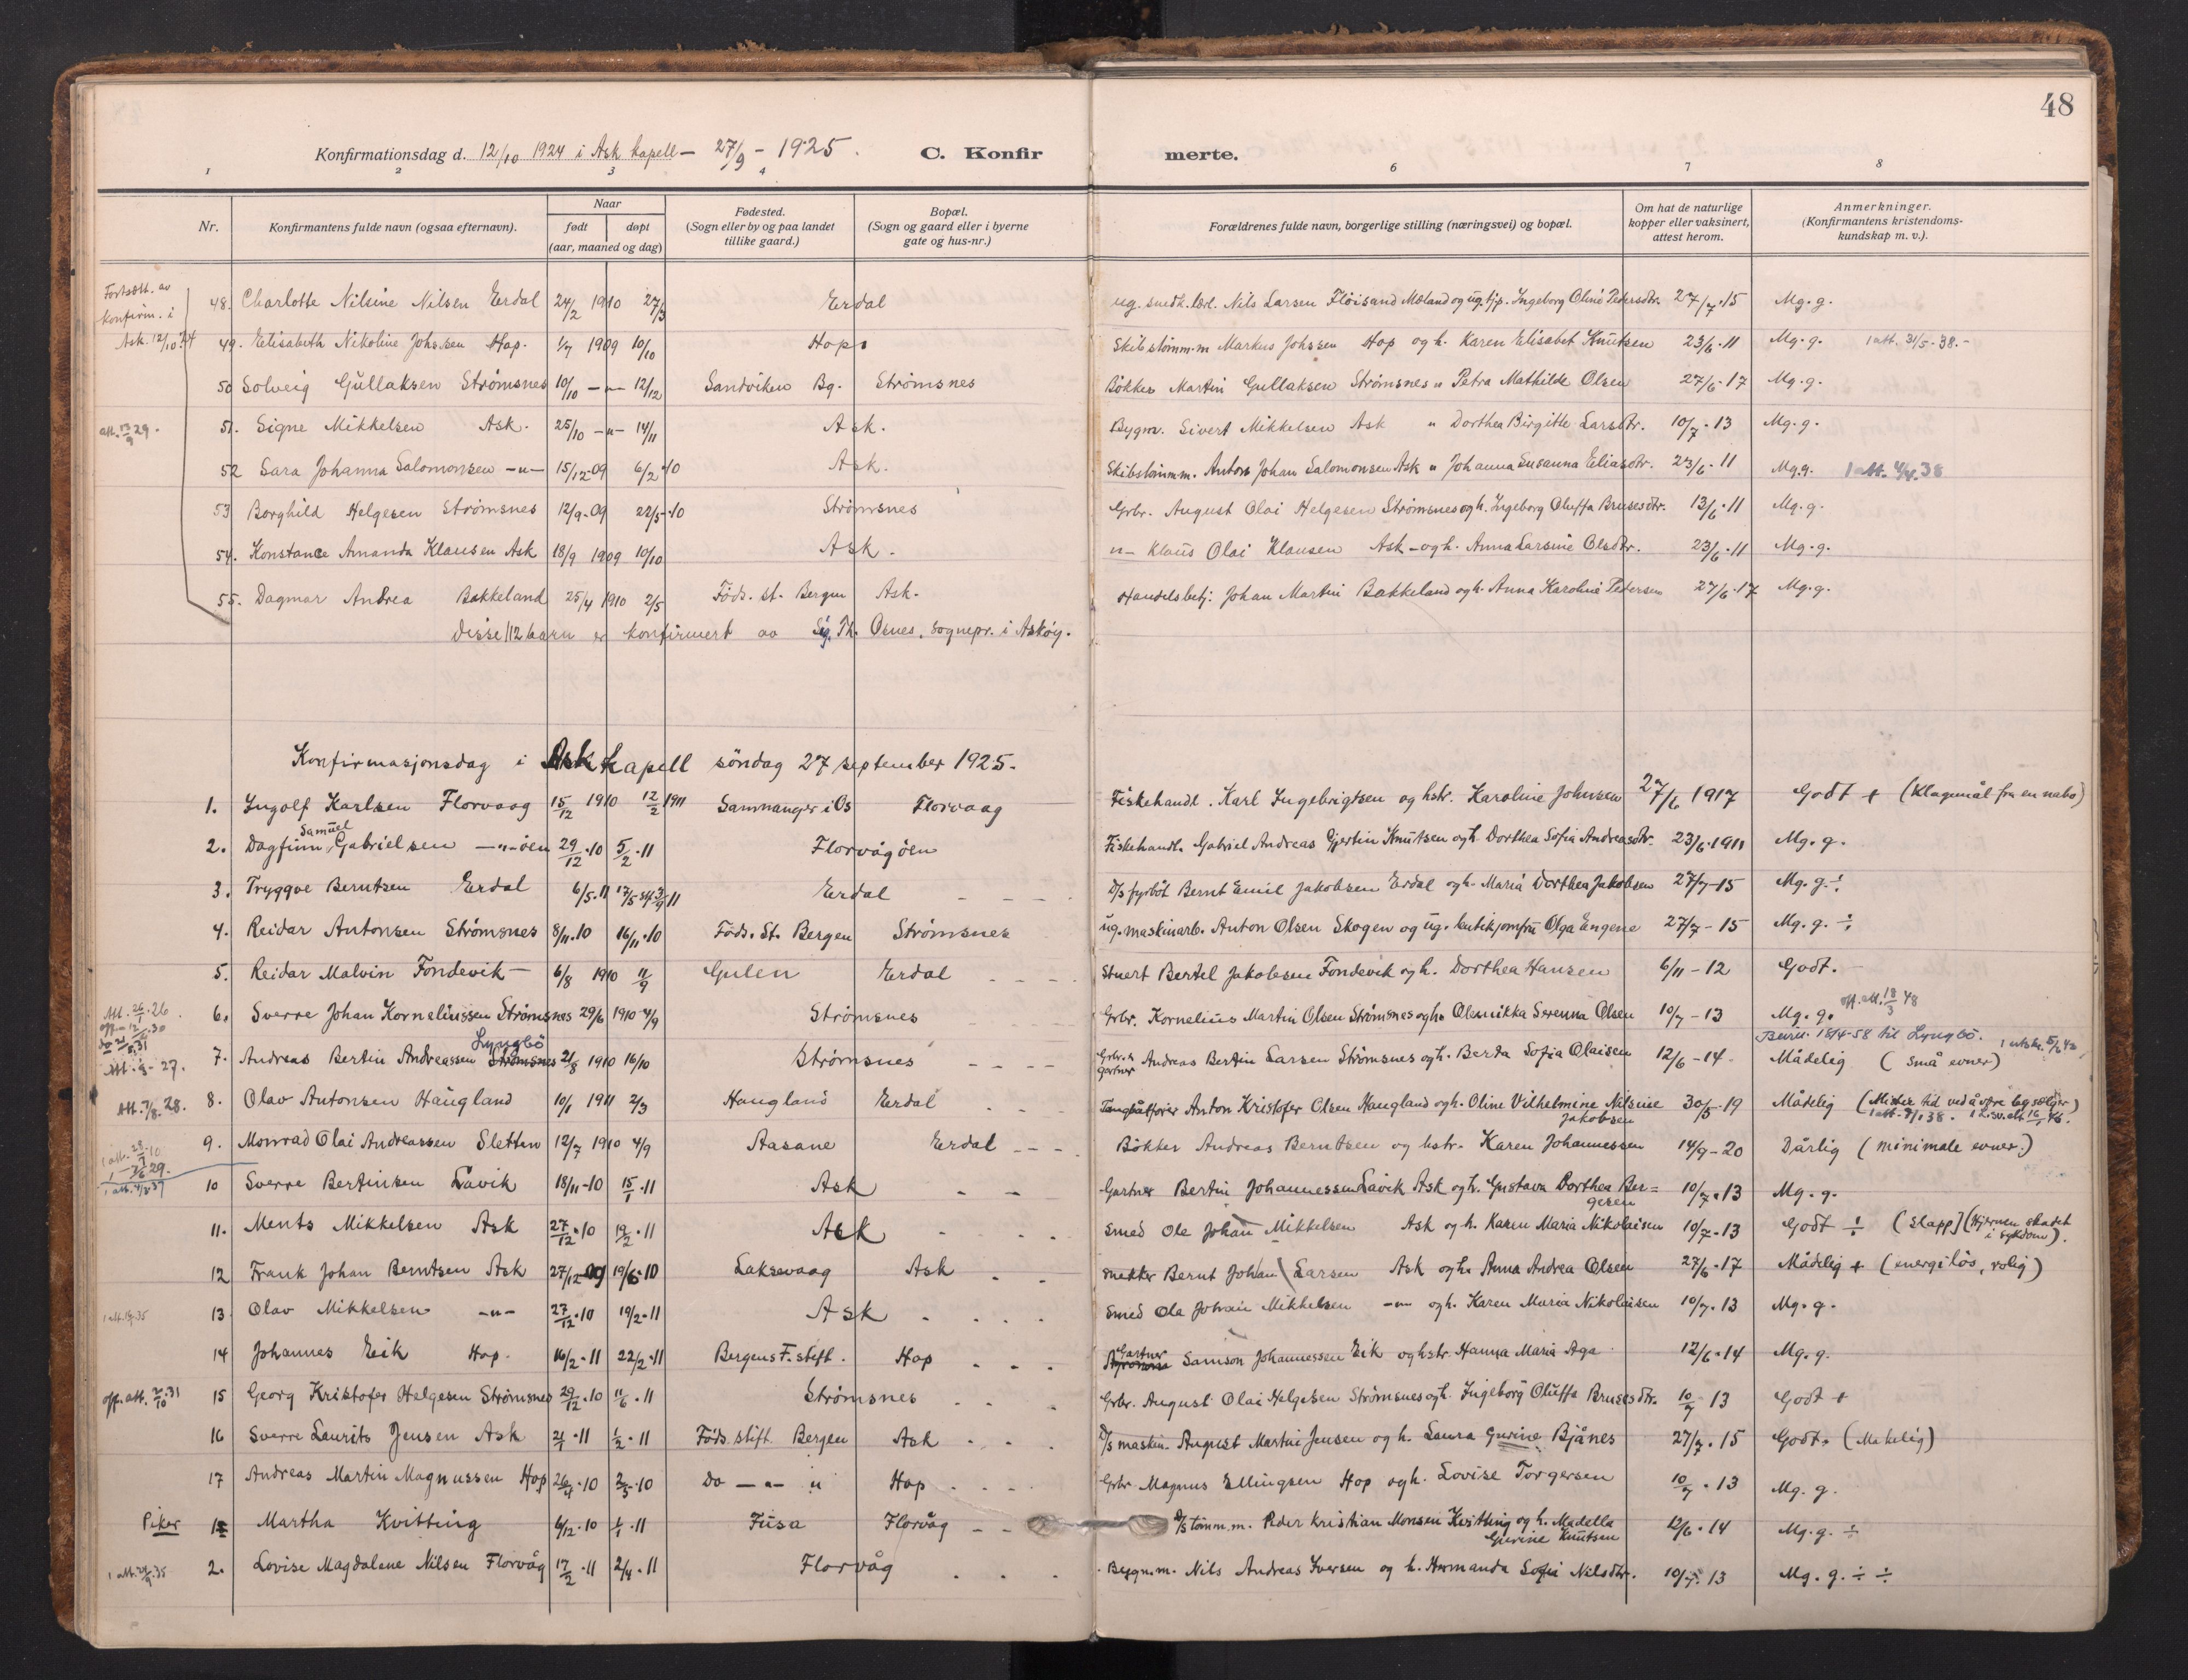 48
Konfirmationsdag d. 12/10 1924 i Ask kapell – 27/9 – 1925. C. Konfir merte.
1 2 3 4 6 7 8
Nr. Konfirmantens fulde navn (ogsaa efternavn). Naar født døpt (aar, maaned og dag) Fødested. (Sogn eller by og paa landet tillike gaard.) Bopæl. (Sogn og gaard eller i byerne gate og hus-nr.) Forældrenes fulde navn, borgerlige stilling (næringsvei) og bopæl. Om hat de naturlige kopper eller vaksinert, attest herom. Anmerkninger. (Konfirmantens kristendoms-kundskap m. v.).
Fortsatt. av konfirm. i Ask. 12/10 24
48. Charlotte Nilsine Nilsen Erdal 24/2 1910 27/3 Erdal ug. snedk. lærl. Nils Larsen Flöisand Mæland og ug. tjp. Ingeborg Oline Pedersdtr. 27/7·15 Mg. g.
49. Elisabeth Nikoline Johssen Hop. 1/7 1909 10/10 Hop. Skibstømm.m Markus Johssen Hop og h. Karen Elisabet Knutsen 23/6·11 Mg. g. 1 att. 31/5-38.-
50 Solveig Gullaksen Strømsnes 10/10 -"- 12/12 Sandviken Bg. Strømsnes Bökker Martin Gullaksen Strømsnes " Petra Mathilde Olsen 27/6·17 Mg. g.
att. 13/9 29.
51. Signe Mikkelsen Ask. 25/10 -"- 14/11 Ask. Bygm. Sivert Mikkelsen Ask " Dorthea Birgitte Larsdtr. 10/7·13 Mg. g.
52 Sara Johanna Salomonsen -"- 15/12-09 6/2·10 Ask. Skibstömm.m. Anton Johan Salomonsen Ask " Johanna Susanna Eliasdtr. 23/6·11 Mg. g. 1 att. 4/4.38
53 Borghild Helgesen Strømsnes 12/9-09 22/5-10 Strømsnes Grbr. August Olai Helgesen Strømsnes og h. Ingeborg Oluffa Brusesdtr. 13/6·11 Mg. g.
54. Konstance Amanda Klausen Ask 18/9 1909 10/10 Ask. "- Klaus Olai Klausen Ask - og h. Anna Larsine Olsdtr. 23/6·11 Mg. g.
55. Dagmar Andrea Bakkeland 25/4 1910 2/5 Föds. st. Bergen Ask. Handelsbetj. Johan Martin Bakkeland og h. Anna Karoline Pedersen 27/6·17 Mg. g.
Disse 112 barn er konfirmert av Sig. Th. Osnes, sognepr. i Askøy.
Konfirmasjonsdag i Ask kapell söndag 27 september 1925.
1. Ingolf Karlsen Florvaag 15/12 1910 12/2 1911 Samnanger i Os Florvaag Fiskehandl. Karl Ingebrigtsen og hstr. Karoline Johnsen 27/6 1917 Godt + (Klagemål fra en nabo)
2. Dagfinn Samuel Gabrielsen -"- öen 29/12·10 5/2·11 Florvågöen Fiskehandl. Gabriel Andreas Gjertin Knutsen og h. Dorthea Sofia Andreasdtr. 23/6·1911 Mg. g.
3. Tryggve Berntsen Erdal 6/5·11 17/5 3/9 11 Erdal D/s fyrböt Bernt Emil Jakobsen Erdal og h. Maria Dorthea Jakobsen 27/7-15 Mg. g. ÷
4. Reidar Antonsen Strømsnes 8/11·10 16/11·10 Föds. St. Bergen Strømsnes ug. maskinarb. Anton Olsen Skogen og ug. butikjomfru Olga Engene 27/7-15 Mg. g. ÷
5. Reidar Malvin Fondevik – 6/8 1910 11/9 Gulen Erdal Stuert Bertel Jakobsen Fondevik og h. Dorthea Hansen 6/11-12 Godt.
Att. 26/1·26.
6. Sverre Johan Korneliussen Strømsnes 29/6 1910 4/9 Strømsnes Grbr. Kornelius Martin Olsen Strømsnes og h. Olemikka Serenna Olsen 10/7-13 Mg. g. off. att. 18/3 48
7. Andreas Bertin Andreassen Strømsnes Lyngbö 21/8 1910 16/10 Strømsnes Grbr. & gartner Andreas Bertin Larsen Strømsnes og h. Berta Sofia Olaisen 12/6-14 Mådelig (små evner) Bevis. 18/4-58 til Lyngbö. 1 utskr. 5/6 42
Att. 7/8.28.
8. Olav Antonsen Haugland 10/1 1911 2/3 Haugland Erdal Anton Kristofer Olsen Haugland og h. Oline Vilhelmine Nilsine Jakobsen 30/5-19 Mådelig (Mister tid ved å være bysælger)
9. Monrad Olai Andreassen Sletten 12/7 1910 4/9 Aasane Erdal Bökker Andreas Berntsen og hstr. Karen Johannessen 14/9-20 Dårlig (minimale evner.)
10 Sverre Bertinsen Låvik 18/11-10 15/1·11 Ask Gartner Bertin Johannessen Låvik Ask og h. Gustava Dorthea Bergesen 10/7·13 Mg. g.
11. Ments Mikkelsen Ask 27/12·10 19/2·11 Ask Smed Ole Johan Mikkelsen Ask og h. Karen Maria Nikolaisen 10/7-13 Godt ÷ (Slapp) (Hjernen skadet i sykdom).
12 Frank Johan Berntsen Ask 27/12-09 19/6·10 Laksevaag Ask Snekker Bernt Johan Larsen Ask og h. Anna Andrea Olsen 27/6·17 Mådelig + (energilös, rolig)
13. Olav Mikkelsen -"- 27/12·10 19/2·11 Ask Smed Ole Johan Mikkelsen -"- og h. Karen Maria Nikolaisen 10/7·13 Mg. g.
14 Johannes Eik Hop. 16/2·11 22/2·11 Bergens F. stift. Hop Gartner Samson Johannessen Eik og hstr. Hanna Maria Aga 12/6·14 Mg. g.
off. att. 2/10·31
15 Georg Kristofer Helgesen Strømsnes 29/12·10 11/6·11 Strømsnes Grbr. August Olai Helgesen Strømsnes og h. Ingeborg Oluffa Brusesdtr. 10/7 13 Godt +
16 Sverre Laurits Jensen Ask 21/1·11 1/2·11 Föds. stift. Bergen Ask D/s maskin. August Martin Jensen og h. Laura Gurine Bjånes 27/7·15 Godt. (Makelig)
17 Andreas Martin Magnussen Hop 26/4·10 2/5·10 Do -"- " Hop Grbr. Magnus Ellingsen Hop og h. Lovise Torgersen 10/7·13 Mg. g.
Piker
1 Martha Kvitting 6/12·10 1/1·11 Fusa Florvåg D/s tömm.m. Peder Kristian Monsen Kvitting og h. Madella Gurine Knutsen 12/6·14 Mg. g. ÷
2. Lovise Magdalene Nilsen Florvåg 17/2·11 2/4·11 Florvåg Bygn.m. Nils Andreas Iversen og h. Hermanda Sofia Nilsdtr. 10/7·13 Mg. g. ÷ ÷